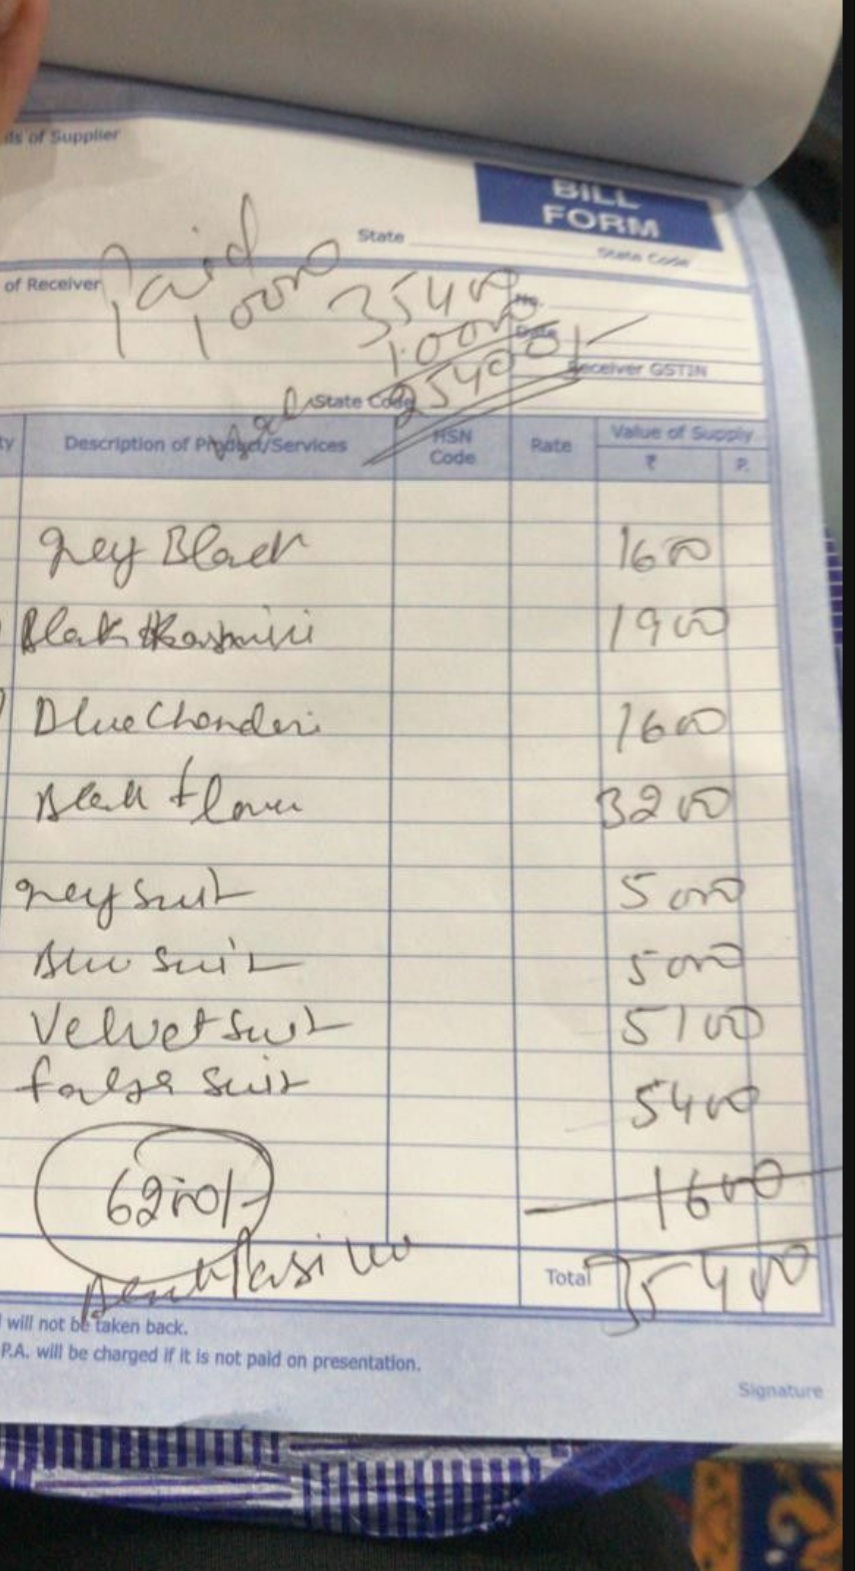 ds of Supplier
BILL
FORM
State
State Code
of Receiver
Paid
10000
35400
No.
10000
Date
25400/-
Receiver GSTIN
State Code
ty Description of Product/Services HSN Code Rate Value of Supply
₹ P.
Grey Black 1600
Black Kashmiri 1900
Blue Chanderi 1600
Black flower 3200
Grey Suit 5000
Blue Suit 5000
Velvet Suit 5100
Suit 5400
6200/- 1600
Total 35400
will not be taken back.
P.A. will be charged if it is not paid on presentation.
Signature